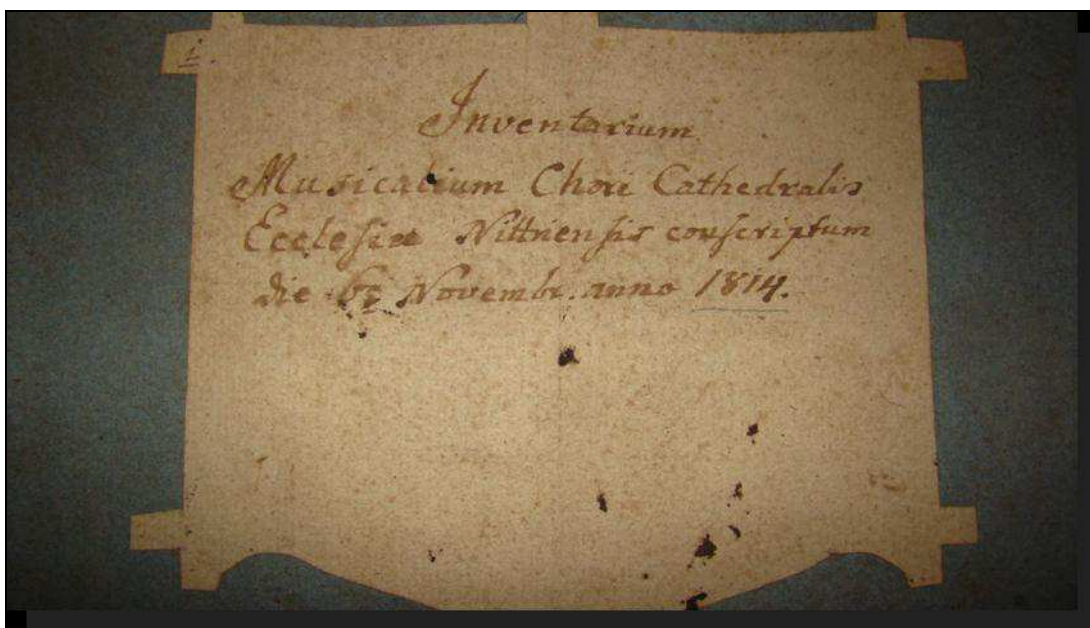 Inventarium
Musicalium Chori Cathedralis
Ecclesiae Nittriensis conscriptum
die Novembr. anno 1814.